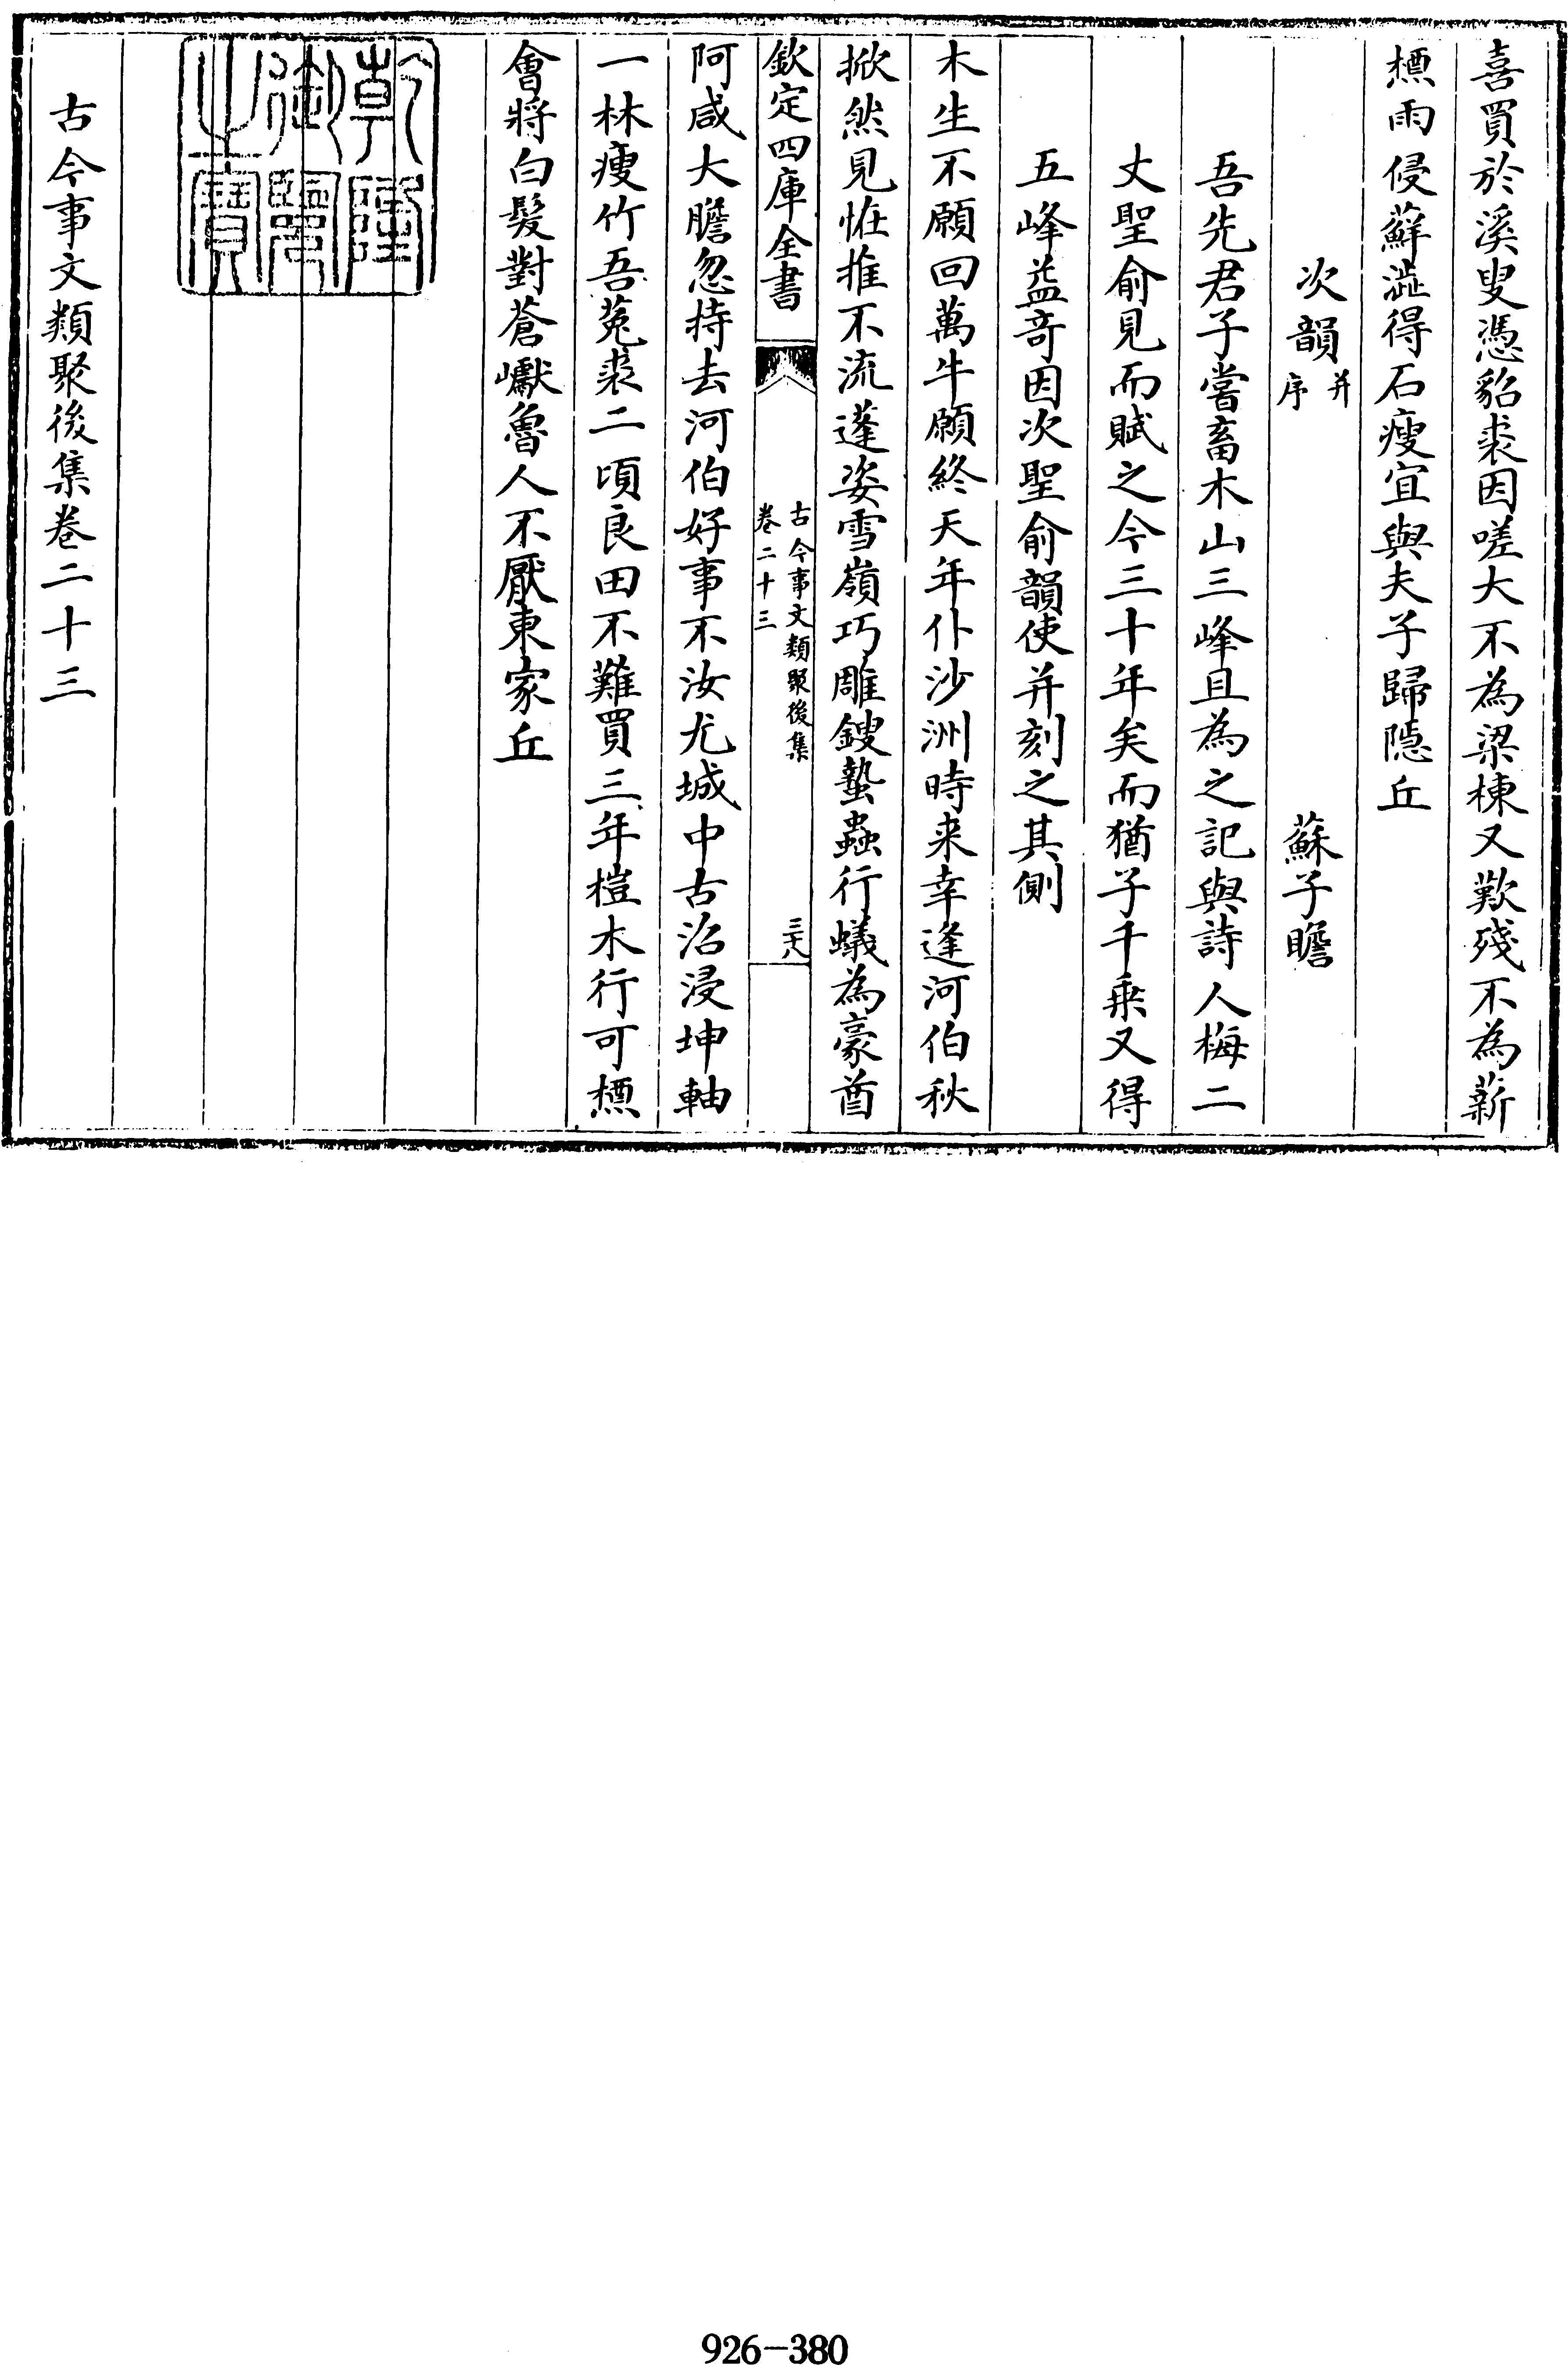 喜買於溪叟憑貂裘因嗟大不為梁棟又歎殘不為薪
槱雨侵蘚澁得石瘦宜與夫子歸隠丘
次韻并序 蘇子瞻
吾先君子嘗畜木山三峰且為之記與詩人梅二
丈聖俞見而賦之今三十年矣而猶子千乗又得
五峰益奇因次聖俞韻使并刻之其側
木生不願回萬牛願終天年仆沙洲時来幸逢河伯秋
掀然見恠推不流蓬姿雪嶺巧雕鎪蟄蟲行蟻為豪酋
欽定四庫全書 古今事文類聚後集 卷二十三 三十八
阿咸大膽忽持去河伯好事不汝尤城中古沼浸坤軸
一林瘦竹吾菟裘二頃良田不難買三年榿木行可槱
會將白髪對蒼巘魯人不厭東家丘
乾隆御覽之寶
古今事文類聚後集卷二十三
926-380